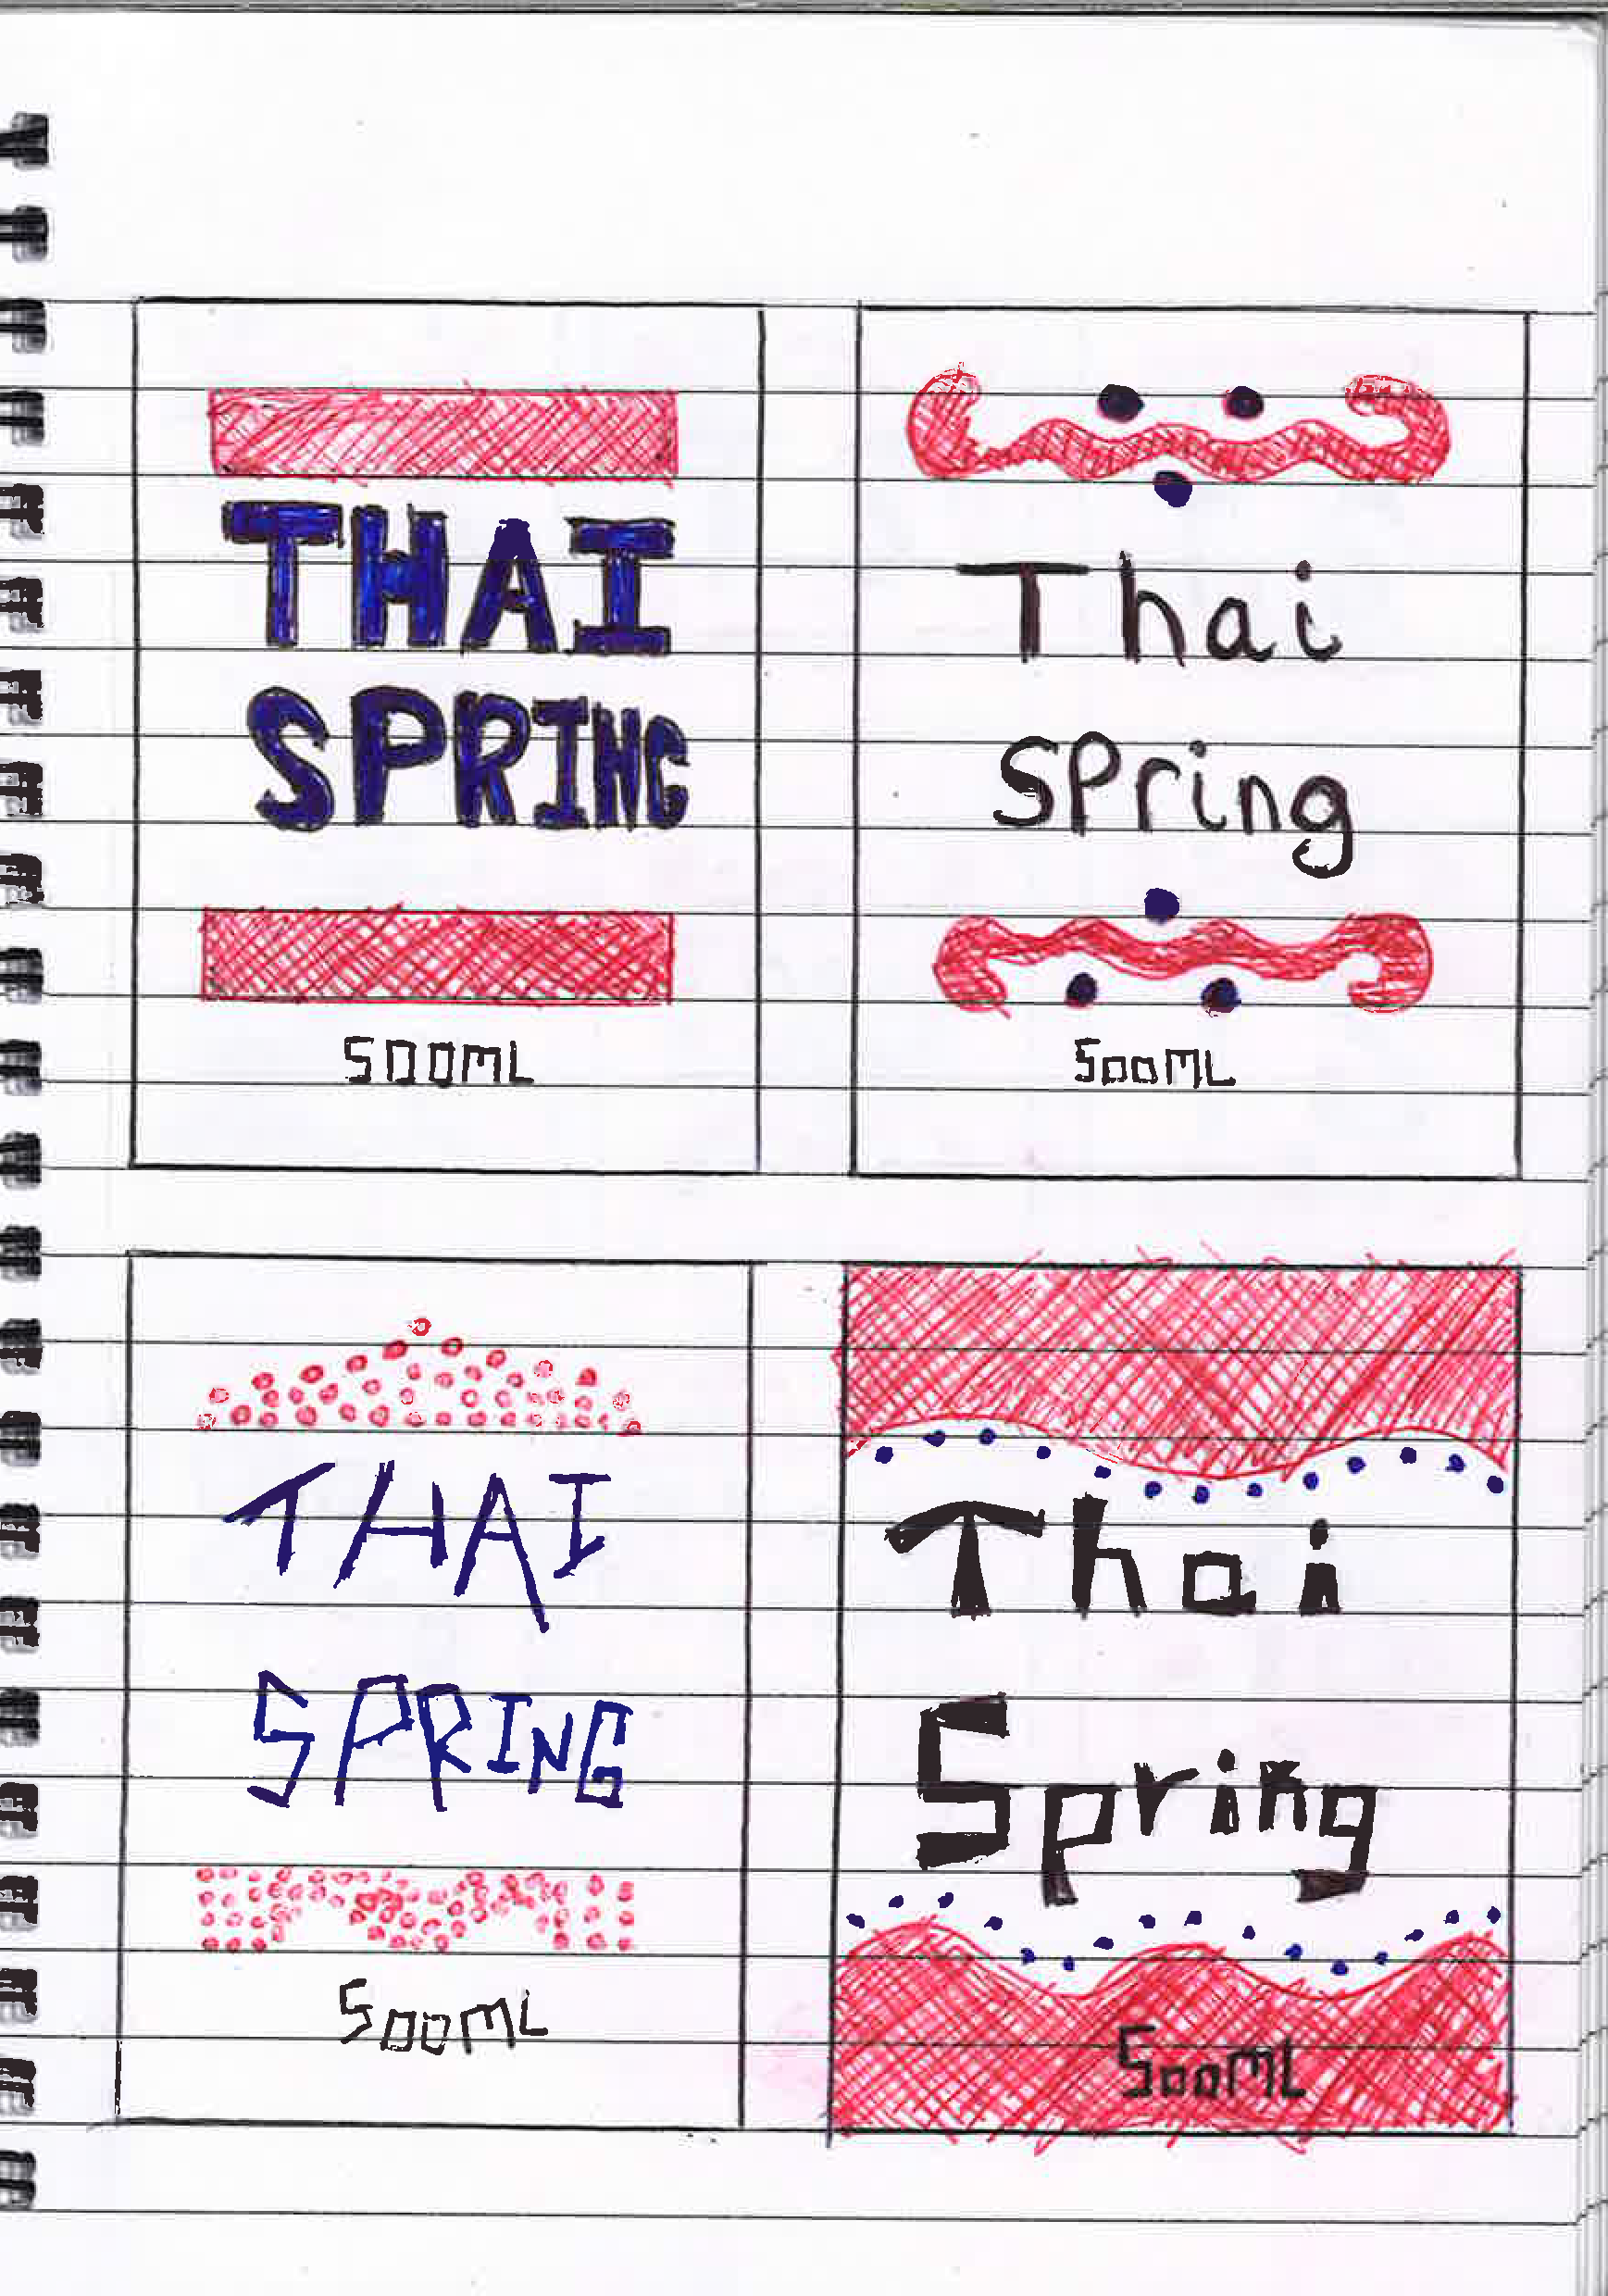 THAI
SPRING
500ML
Thai
Spring
500ML
THAI
SPRING
500ML
Thai
Spring
500ML